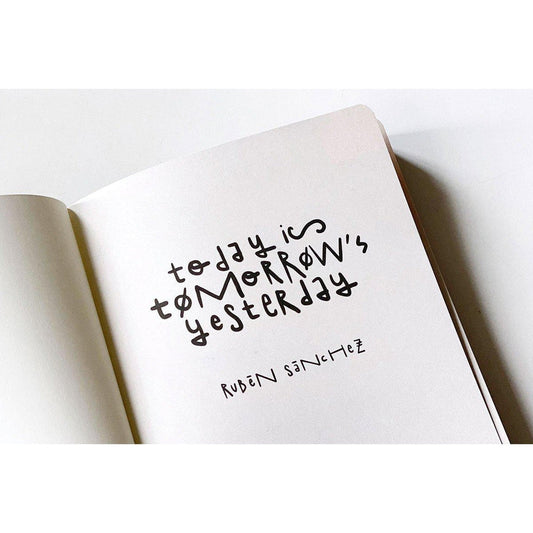 today is
tØMoRRØW's
yesterday
RUBĒN SāNCHEZ